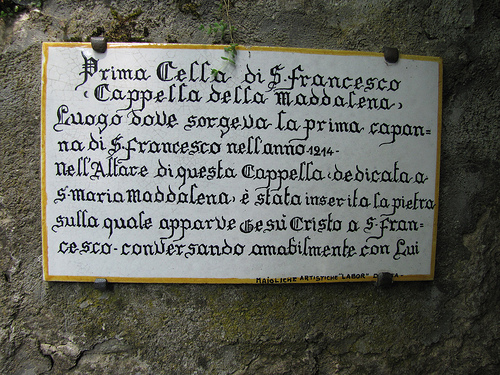 Prima Cella di S. Francesco
"Cappella della Maddalena"
Luogo dove sorgeva la prima capan=
na di S. Francesco nell'anno 1214.
nell'Altare di questa Cappella dedicata a
S. Maria Maddalena, è stata inserita la pietra
sulla quale apparve Gesù Cristo a S. Fran=
cesco conversando amabilmente con Lui
MAIOLICHE ARTISTICHE "LABOR"